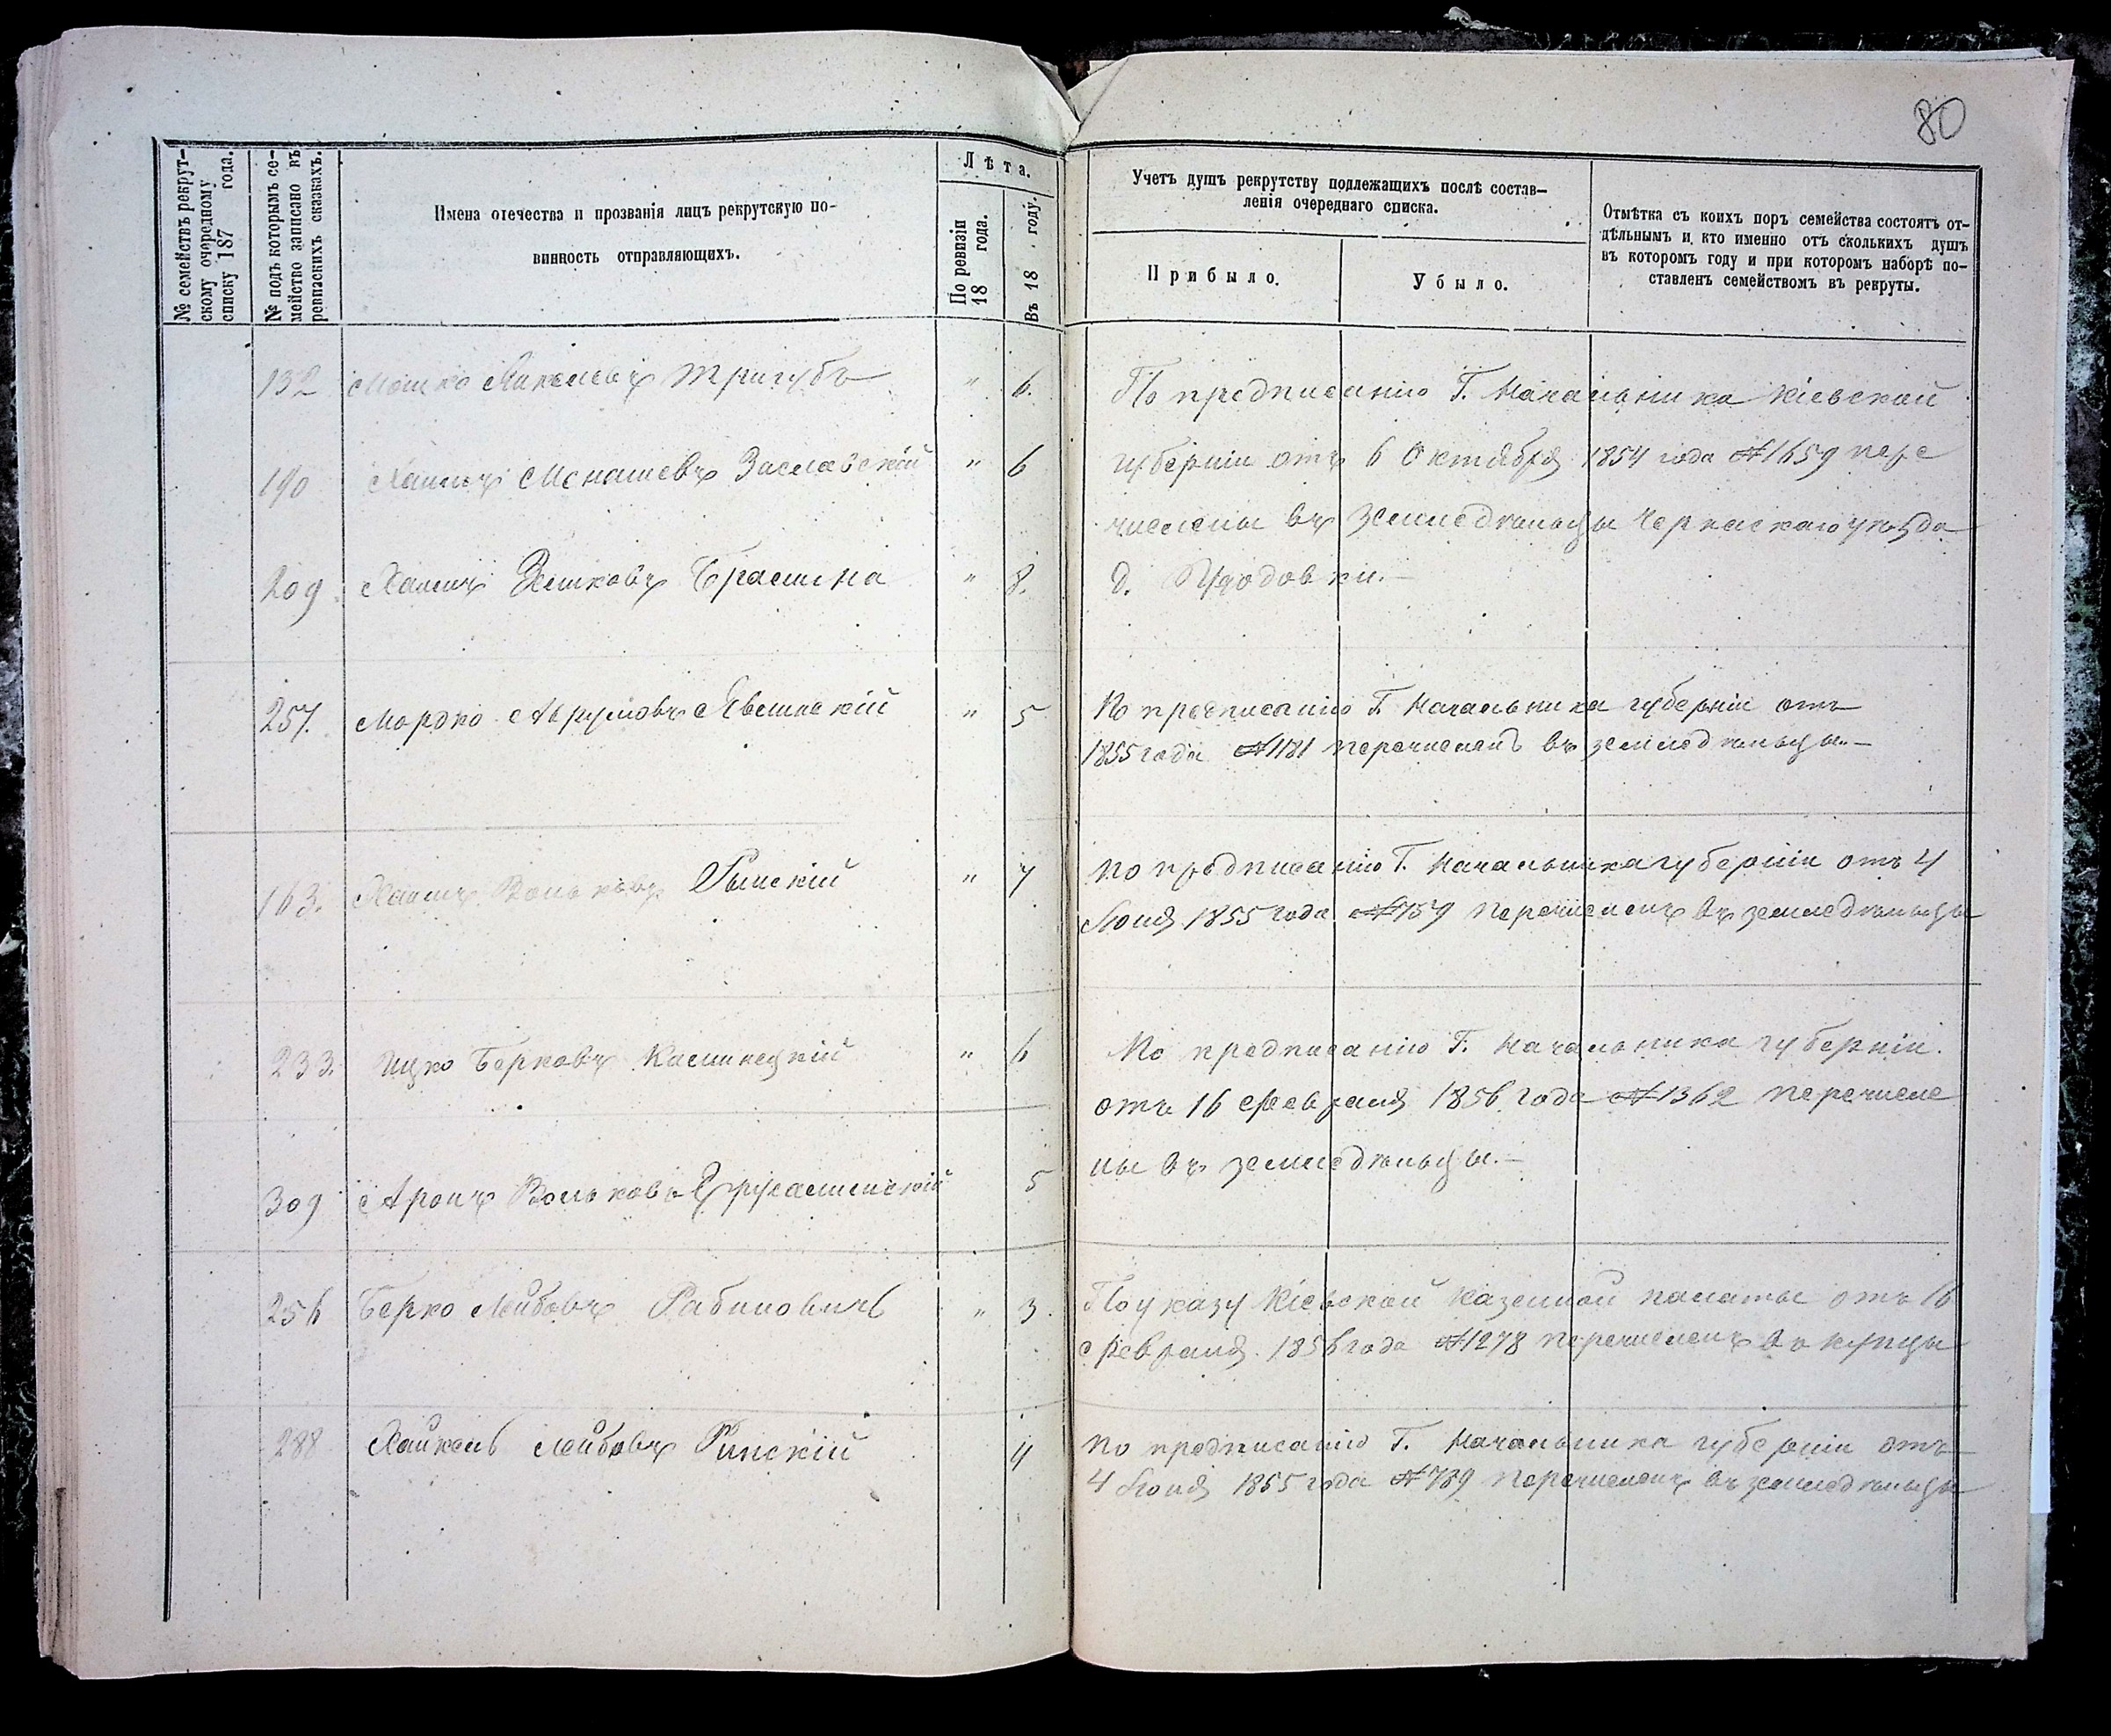 80
№ семействъ рекрут-
скому очередному
списку 187 года.
№ подъ которымъ се-
мейство записано въ
ревизскихъ сказкахъ.
Имена отечества и прозванія лицъ рекрутскую по-
винность отправляющихъ.
Лѣта.
По ревизіи
18 года.
Въ 18 году.
Учетъ душъ рекрутству подлежащихъ послѣ состав-
ленія очереднаго списка.
Прибыло.
Убыло.
Отмѣтка съ коихъ поръ семейства состоятъ от-
дѣльнымъ и кто именно отъ сколькихъ душъ
въ котором году и при котором наборѣ по-
ставленъ семействомъ въ рекруты.
132 Мошко Янкелевъ Тригубъ " 6.
По предписанію Г. Начальника Кіевской
190 Хаимъ Менашевъ Заславскій " 6
губерніи отъ 6 Октября 1854 года №1659 пере
числены въ земледѣльцы Черкаскаго уѣзда
209 Хаимъ " 8.
д.
257. Мордко Аврумовъ " 5
По предписанію Г. Начальника губерніи отъ
1855 года №1181 перечисленъ въ земледѣльцы.—
163. Хаимъ Вольковъ Рымскій " 7
По предписанію Г. Начальника губерніи отъ 4
Іюня 1855 года №759 перечисленъ въ земледѣльцы
233. Ицко Берковъ Каминецкій " 6
По предписанію Г. Начальника губерніи.
отъ 16 Февраля 1856 года №1362 перечисле
ны въ земледѣльцы.—
309 Аронъ Вольковъ 5
256 Берко Лейбовъ Рабиновичъ " 3.
По указу Кіевской Казенной палаты отъ 16
Февраля 1856 года №1278 перечисленъ въ купцы
288 Хайкель Лейбовъ Римскій 4
По предписанію Г. Начальника губерніи отъ
4 Іюня 1855 года №789 перечисленъ въ земледѣльцы